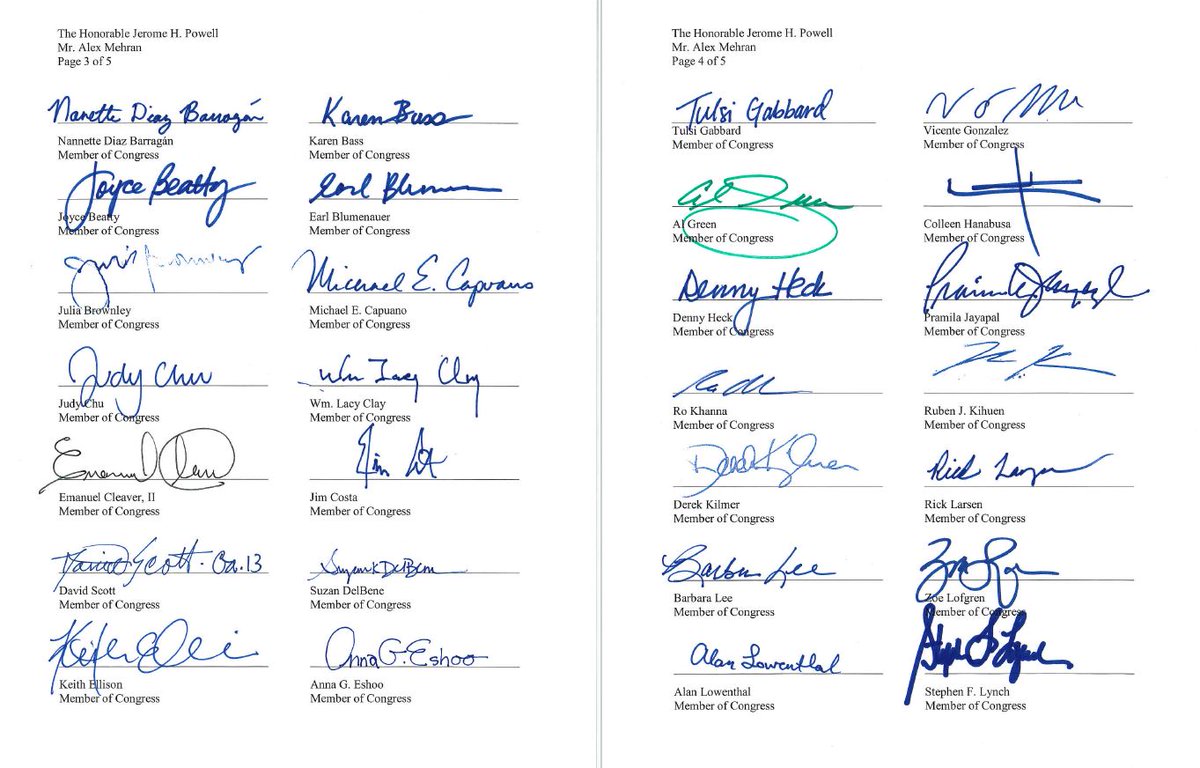 The Honorable Jerome H. Powell
Mr. Alex Mehran
Page 3 of 5
Nanette Diaz Barragán
Karen Bass
Nannette Diaz Barragán
Karen Bass
Member of Congress
Member of Congress
Joyce Beatty
Earl Blumenauer
Joyce Beatty
Earl Blumenauer
Member of Congress
Member of Congress
Julia Brownley
Michael E. Capuano
Julia Brownley
Michael E. Capuano
Member of Congress
Member of Congress
Judy Chu
Wm Lacy Clay
Judy Chu
Wm. Lacy Clay
Member of Congress
Member of Congress
Emanuel Cleaver
Jim Costa
Emanuel Cleaver, II
Jim Costa
Member of Congress
Member of Congress
David Scott - Ga. 13
Suzan K DelBene
David Scott
Suzan DelBene
Member of Congress
Member of Congress
Keith Ellison
Anna G. Eshoo
Keith Ellison
Anna G. Eshoo
Member of Congress
Member of Congress
The Honorable Jerome H. Powell
Mr. Alex Mehran
Page 4 of 5
Tulsi Gabbard
Tulsi Gabbard
Vicente Gonzalez
Member of Congress
Member of Congress
Al Green
Al Green
Colleen Hanabusa
Member of Congress
Member of Congress
Denny Heck
Pramila Jayapal
Denny Heck
Pramila Jayapal
Member of Congress
Member of Congress
Ro Khanna
Ruben J. Kihuen
Member of Congress
Member of Congress
Derek Kilmer
Rick Larsen
Derek Kilmer
Rick Larsen
Member of Congress
Member of Congress
Barbara Lee
Zoe Lofgren
Barbara Lee
Zoe Lofgren
Member of Congress
Member of Congress
Alan Lowenthal
Stephen F. Lynch
Alan Lowenthal
Stephen F. Lynch
Member of Congress
Member of Congress